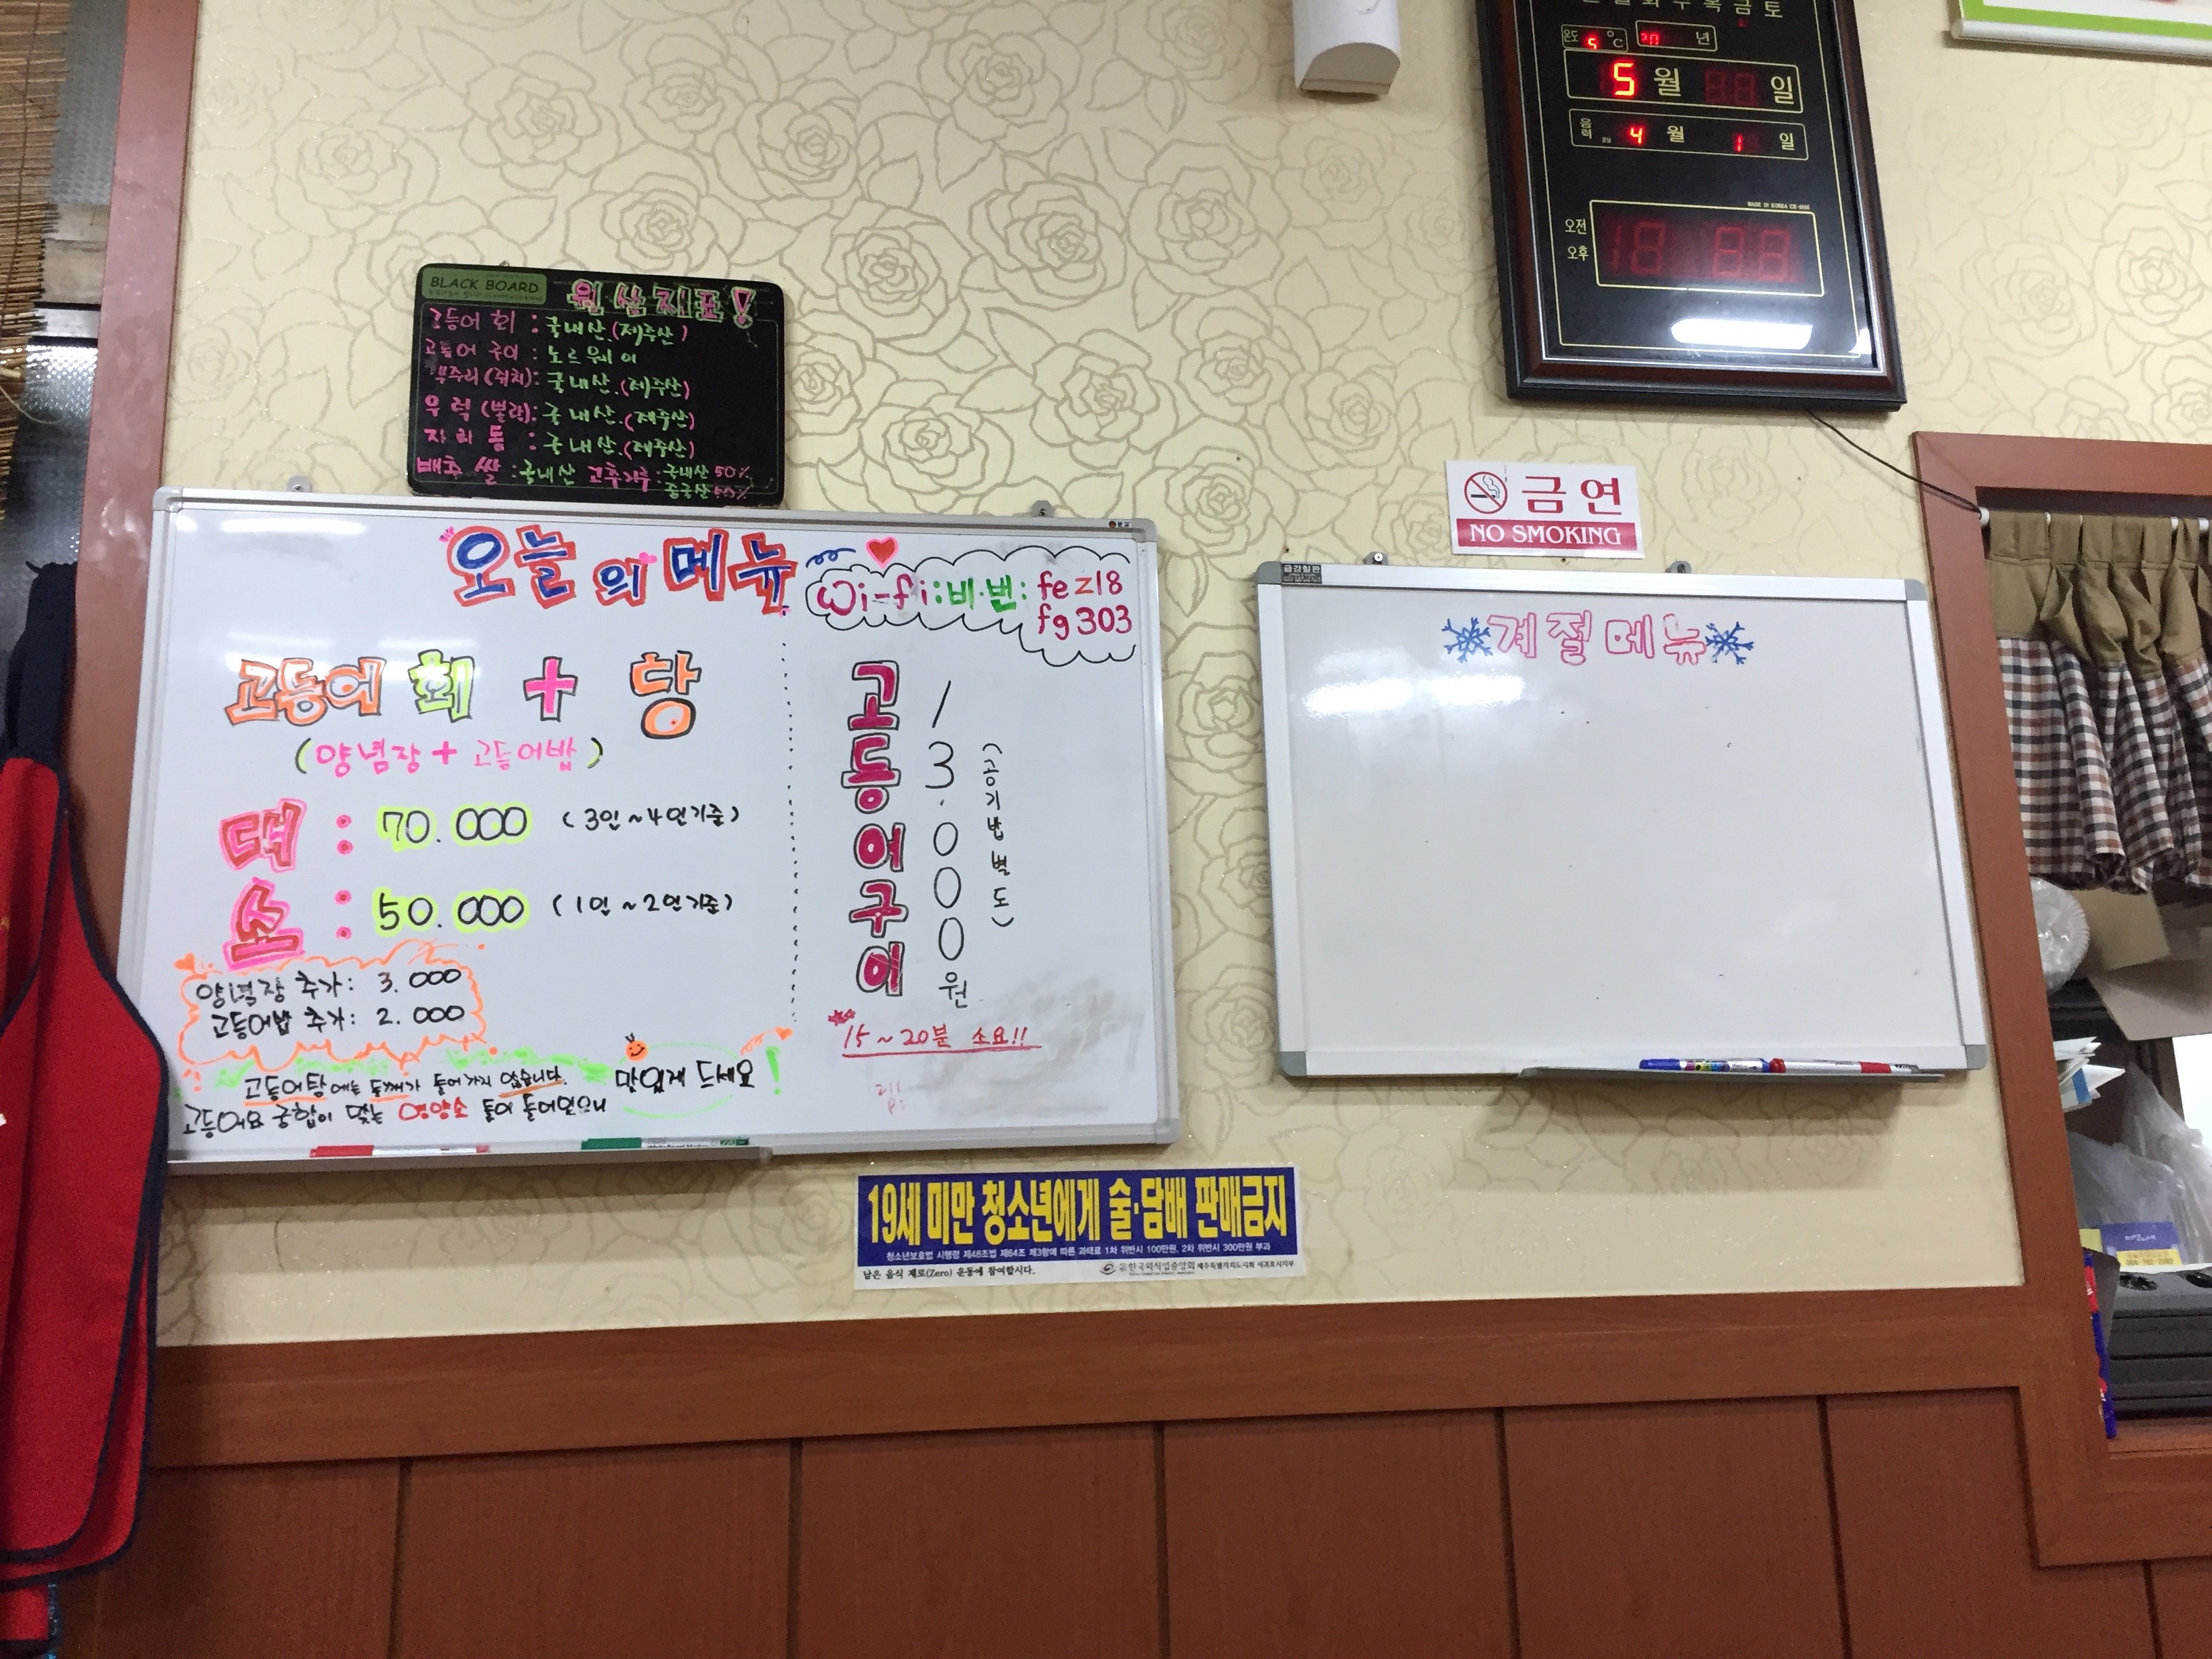 BLACK BOARD
원산지표!
고등어 회 : 국내산.(제주산)
고등어 구이 : 노르웨이
객주리(쥐치): 국내산.(제주산)
우럭(볼락): 국내산.(제주산)
자리돔 : 국내산.(제주산)
배추 쌀 : 국내산 고추가루 : 국내산 50%
중국산 50%
오늘의 메뉴
Wi-fi : 비.번 : fezl8
fg303
고등어 회 + 탕
(양념장 + 고등어밥)
대 : 70.000 (3인~4인기준)
소 : 50.000 (1인~2인기준)
양념장 추가: 3.000
고등어밥 추가: 2.000
고등어탕에는 들깨가 들어가지 않습니다.
고등어와 궁합이 맞는 영양소 들이
맛있게 드세요!
고등어구이
13.000원
(공기밥 별도)
15~20분 소요!!
금연
NO SMOKING
계절메뉴
금강칠판
화 수 목 금 토
온도 5 °C 년
5 월 일
음력 4 월 1 일
MADE IN KOREA
오전
오후
19세 미만 청소년에게 술·담배 판매금지
청소년보호법 시행령 제48조법 제64조 제3항에 따른 과태료 1차 위반시 100만원, 2차 위반시 300만원 부과
남은 음식 제로(Zero) 운동에 참여합시다.
한국외식업중앙회 제주특별자치도지회 서귀포시지부